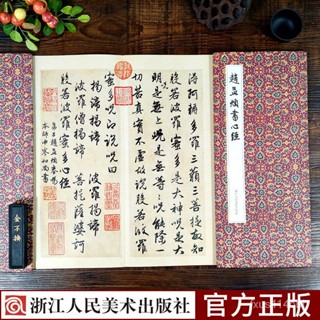 洛阿耨多羅三藐三菩提故知
般若波羅蜜多是大神呪是大
明呪是無上呪是無等等呪能除一
切苦真實不虛故說般若波羅
蜜多呪即說呪曰
揭諦揭諦 波羅揭諦
波羅僧揭諦 菩提薩婆訶
般若波羅蜜多心經
弟子趙孟頫奉為
本師中峯和尚書
趙孟頫書心經
金不換
浙江人民美术出版社 官方正版